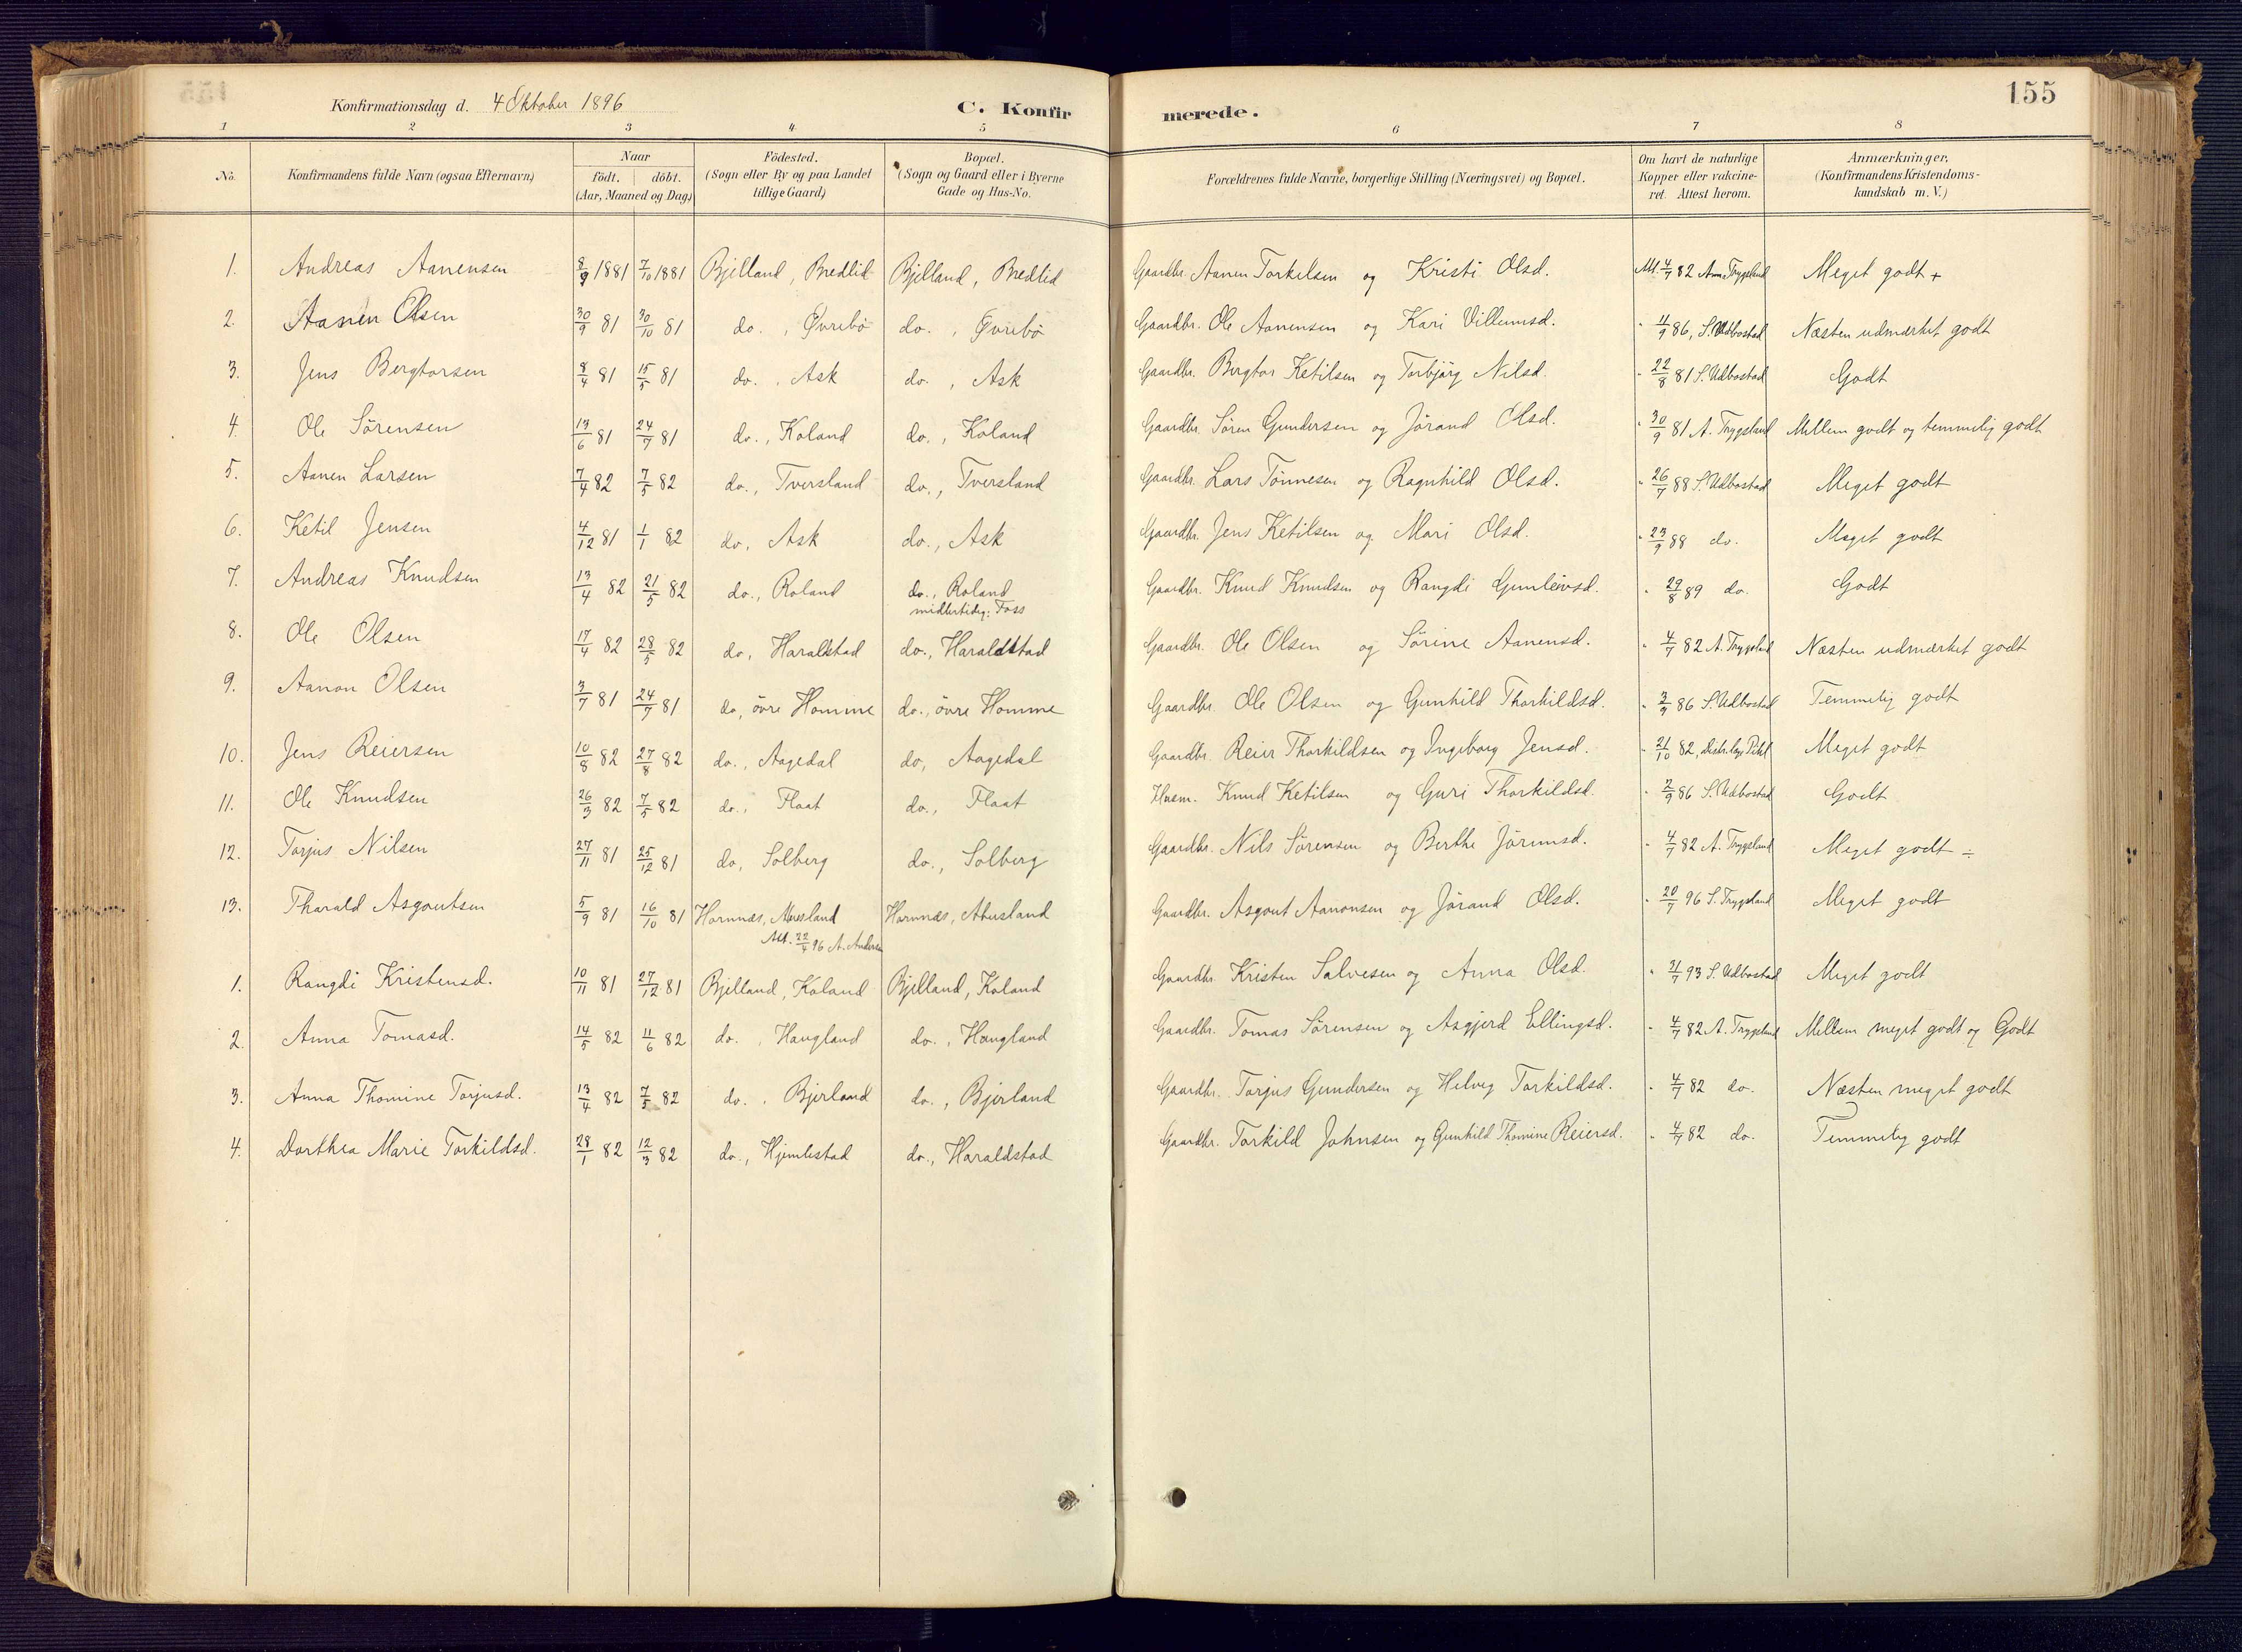 155
Konfirmationsdag d. 4 Oktober 1896
C. Konfirmerede.
1 2 3 4 5 6 7 8
No. Konfirmandens fulde Navn (ogsaa Efternavn) Naar født. døbt. (Aar, Maaned og Dag) Fødested. (Sogn eller By og paa Landet tillige Gaard) Bopæl. (Sogn og Gaard eller i Byerne Gade og Hus-No. Forældrenes fulde Navne, borgerlige Stilling (Næringsvei) og Bopæl. Om havt de naturlige Kopper eller vakcineret. Attest herom. Anmærkninger. (Konfirmandens Kristendomskundskab m. V.)
1. Andreas Aanensen 8/9 1881 7/10 1881 Bjelland, Bredlid Bjelland, Bredlid Gaardbr. Aanen Torkilsen og Kristi Olsd. Att. 4/7 82 Trygsland Meget godt +
2. Aanen Olsen 30/9 81 30/10 81 do., Øvrebö do., Øvrebö Gaardbr. Ole Aanensen og Kari Villumsd. " 11/9 86, S. Udbostad Næsten udmærket godt
3. Jens Bergtorsen 8/4 81 15/5 81 do., Ask do., Ask Gaardbr. Bergtor Ketilsen og Torbjörg Nilsd. " 22/8 81 S. Udbostad Godt
4. Ole Sörensen 13/6 81 24/7 81 do., Koland do., Koland Gaardbr. Sören Gundersen og Jörand Olsd. " 30/9 81 A. Trygsland Mellem godt og temmelig godt
5. Aanen Larsen 7/4 82 7/5 82 do., Tversland do., Tversland Gaardbr. Lars Tönnesen og Ragnhild Olsd. " 26/7 88 S. Udbostad Meget godt
6. Ketil Jensen 4/12 81 1/1 82 do. Ask do., Ask Gaardbr. Jens Ketilsen og Mari Olsd. " 23/9 88 do. Meget godt
7. Andreas Knudsen 13/4 82 21/5 82 do., Roland do., Roland midlertidig: Foss Gaardbr. Knud Knudsen og Rangdi Gunleivsd. " 29/8 89 do. Godt
8. Ole Olsen 17/4 82 28/5 82 do, Haraldstad do., Haraldstad Gaardbr. Ole Olsen og Sörine Aanensd. " 4/7 82 A. Trygsland Næsten udmærket godt
9. Aanon Olsen 3/7 81 24/7 81 do, övre Homme do., övre Homme Gaardbr. Ole Olsen og Gunhild Thorkildsd. " 3/9 86 S. Udbostad Temmelig godt
10. Jens Reiersen 10/8 82 27/8 82 do., Aagedal do, Aagedal Gaardbr. Reier Thorkildsen og Ingeborg Jensd. " 21/10 82, Meget godt
11. Ole Knudsen 26/3 82 7/5 82 do., Flaat do., Flaat Husm. Knud Ketilsen og Guri Thorkildsd. " 2/9 86 S. Udbostad Godt
12. Torjus Nilsen 27/11 81 25/12 81 do, Solberg do., Solberg Gaardbr. Nils Sörensen og Berthe Jörunsd. " 4/7 82 A. Trygsland Meget godt ÷
13. Tharald Asgoutsen 5/9 81 16/10 81 Hornnæs, Abusland Att. 22/4 96 A. Andersen Hornnæs, Abusland Gaardbr. Asgout Aanonsen og Jörand Olsd. " 20/7 96 S. Trygsland Meget godt
1. Rangdi Kristensd. 10/11 81 27/12 81 Bjelland, Koland Bjelland, Koland Gaardbr. Kristen Salvesen og Anna Olsd. " 31/7 93 S. Udbostad Meget godt
2. Anna Tomasd. 14/5 82 11/6 82 do., Haugland do., Haugland Gaardbr. Tomas Sörensen og Asgjerd Ellingsd. " 4/7 82 A. Trygsland Mellem meget godt og Godt
3. Anna Thomine Torjusd. 13/4 82 7/5 82 do., Bjerland do., Bjerland Gaardbr. Torjus Gundersen og Helveg Torkildsd. " 4/7 82 do. Næsten meget godt
4. Dorthea Marie Torkildsd. 28/1 82 12/3 82 do., Hjemlestad do., Haraldstad Gaardbr. Torkild Johnsen og Gunhild Thomine Reiersd. " 4/7 82 do. Temmelig godt